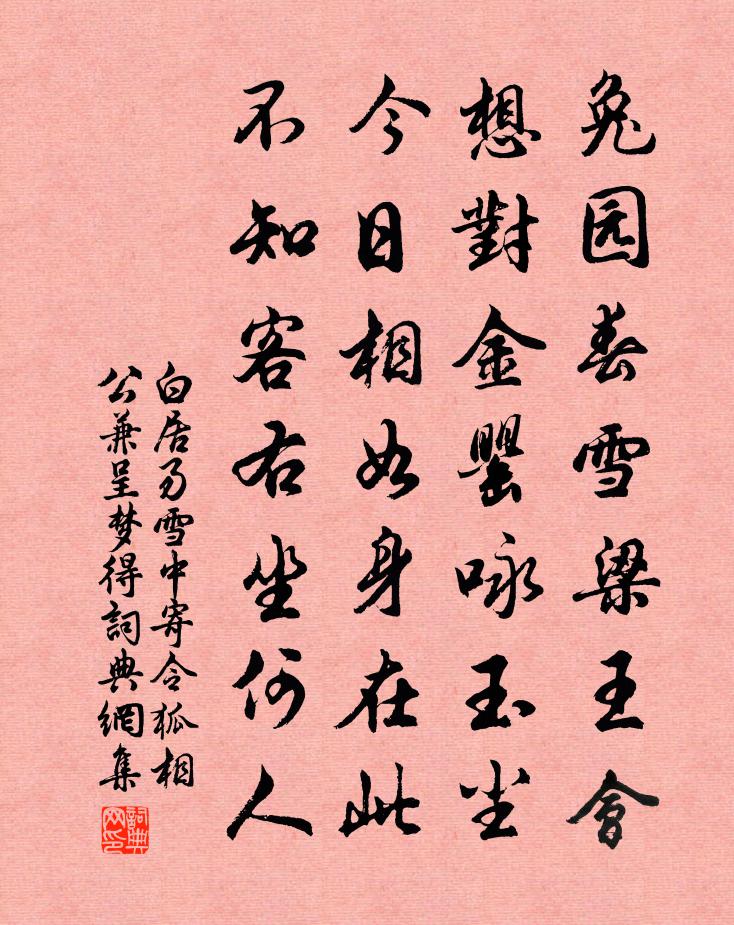 兔园春雪梁王會
想對金罍咏玉尘
今日相如身在此
不知客右坐何人
白居易雪中寄令狐相
公兼呈梦得詞典網集
詞典网印